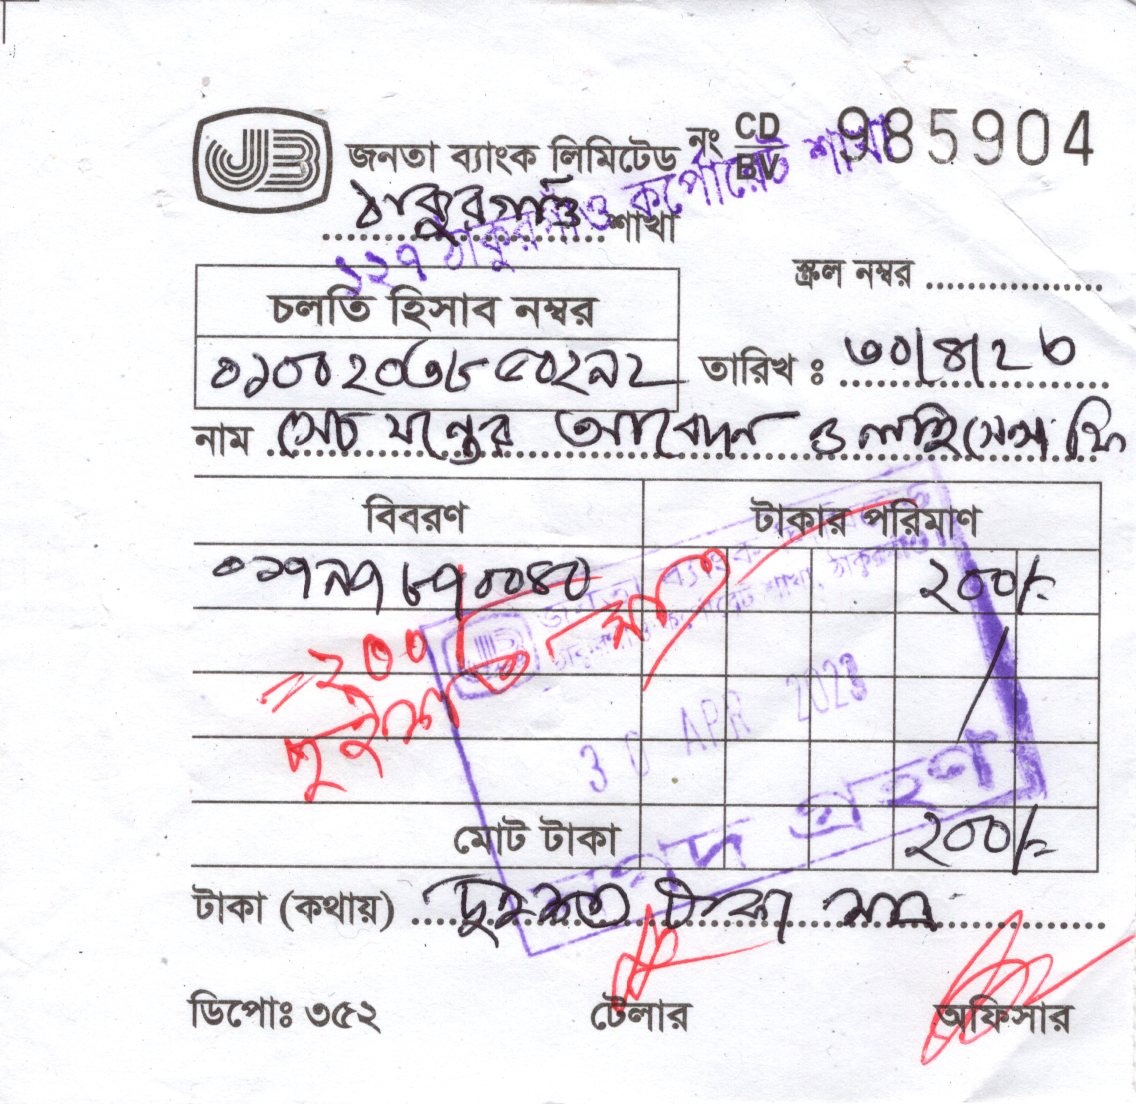 JB জনতা ব্যাংক লিমিটেড নং CD BV 985904
ঠাকুরগাঁও শাখা
১২৭ ঠাকুরগাঁও কর্পোরেট শাখা
স্ক্রল নম্বর
চলতি হিসাব নম্বর
তারিখ : ৩০/৪/২৩
নাম সেচ যন্ত্রের আবেদন ও লাইসেন্স ফি
বিবরণ টাকার পরিমাণ
০১৭৯৭৮৭০০৪০ ২০০/=
=২০০
দুইশত
30 APR 2023
নগদ গ্রহণ
মোট টাকা ২০০/=
টাকা (কথায়) দুইশত টাকা মাত্র
ডিপোঃ ৩৫২ টেলার অফিসার